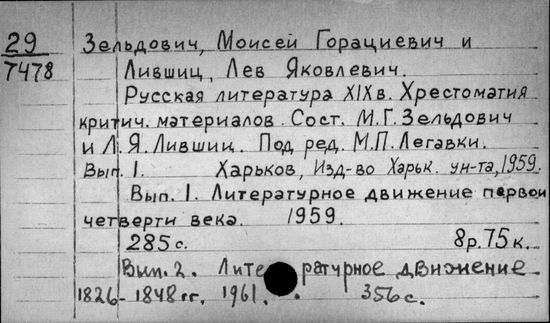 29
7478
Зельдович, Моисей Горациевич и
Лившиц, Лев Яковлевич.
Русская литература XIX в. Хрестоматия
критич. материалов. Сост. М.Г. Зельдович
и Л.Я. Лившиц. Под ред. М.П. Легавки.
Вып. 1. Харьков, Изд-во Харьк. ун-та, 1959.
Вып. 1. Литературное движение первой
четверти века. 1959.
285 с. 8 р. 75 к.
Вып. 2. Литературное движение
1826-1848 гг. 1961. 356 с.